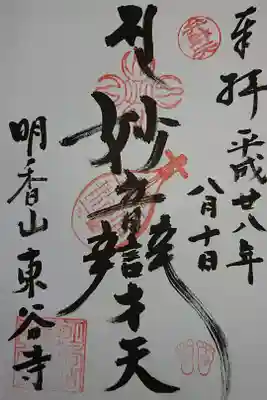 奉拝 平成廿八年
八月十日
妙音辯才天
明香山 東谷寺